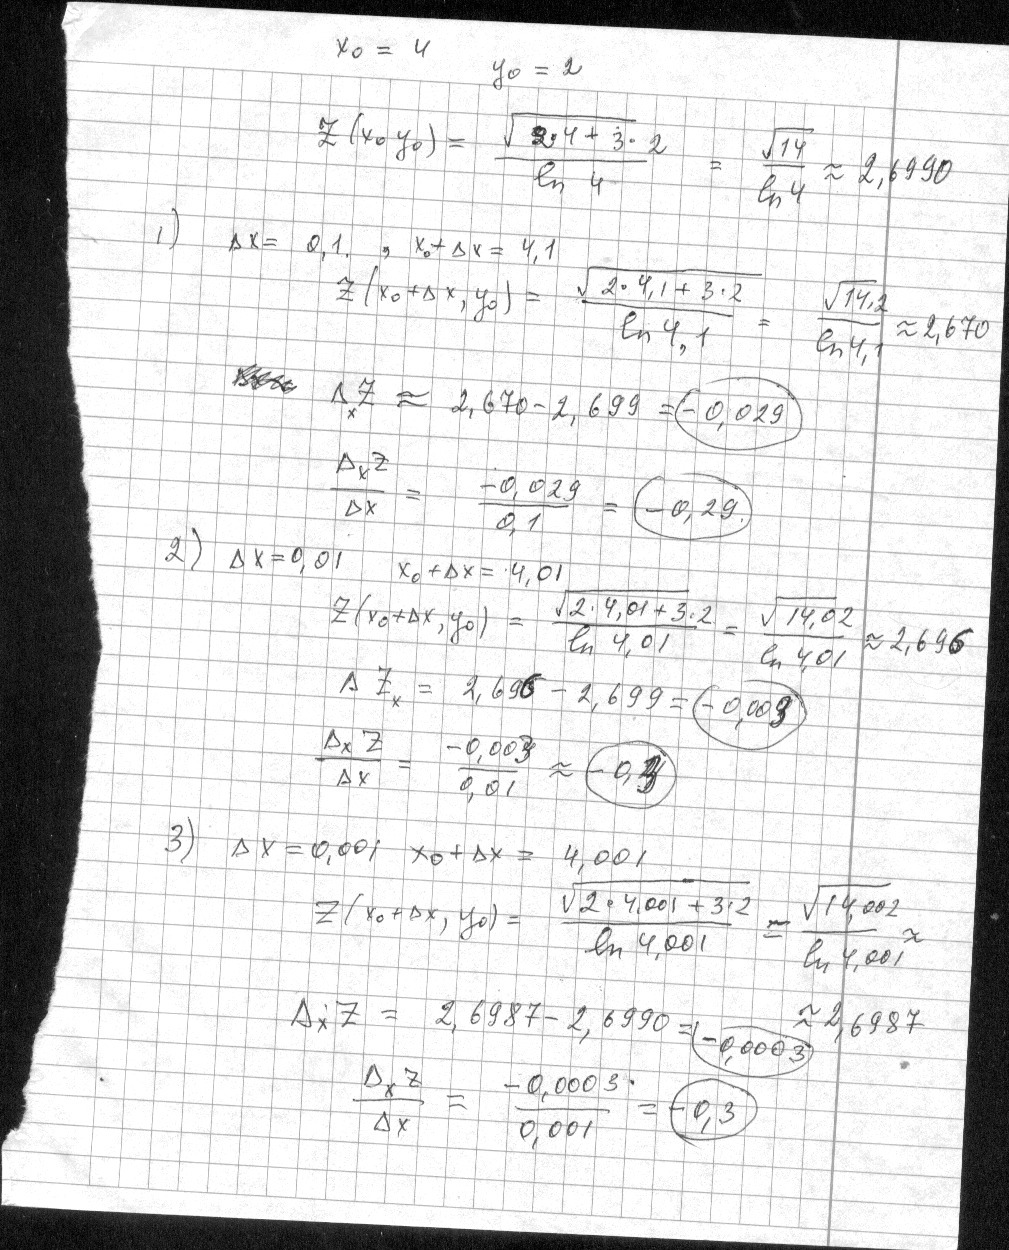 x₀ = 4
y₀ = 2
Z(x₀ y₀) = √(2·4 + 3·2) / ln 4 = √14 / ln 4 ≈ 2,6990
1) Δx = 0,1 , x₀+Δx = 4,1
Z(x₀+Δx, y₀) = √(2·4,1 + 3·2) / ln 4,1 = √14,2 / ln 4,1 ≈ 2,670
ΔₓZ ≈ 2,670 - 2,699 = -0,029
ΔₓZ / Δx = -0,029 / 0,1 = -0,29
2) Δx = 0,01 x₀+Δx = 4,01
Z(x₀+Δx, y₀) = √(2·4,01 + 3·2) / ln 4,01 = √14,02 / ln 4,01 ≈ 2,696
ΔZₓ = 2,696 - 2,699 = -0,003
ΔₓZ / Δx = -0,003 / 0,01 ≈ -0,3
3) Δx = 0,001 x₀+Δx = 4,001
Z(x₀+Δx, y₀) = √(2·4,001 + 3·2) / ln 4,001 = √14,002 / ln 4,001 ≈
≈ 2,6987
ΔₓZ = 2,6987 - 2,6990 = -0,0003
ΔₓZ / Δx = -0,0003 / 0,001 = -0,3